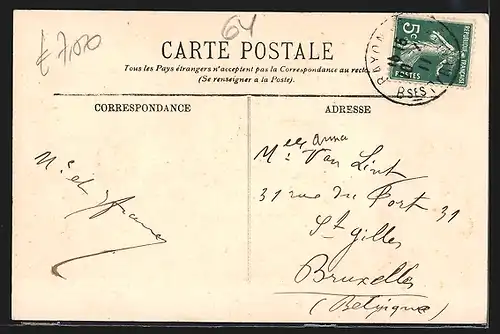 € 7,00
64
CARTE POSTALE
Tous les Pays étrangers n'acceptent pas la Correspondance au recto
(Se renseigner à la Poste).
RÉPUBLIQUE FRANÇAISE
5c
POSTES
BSES
CORRESPONDANCE
ADRESSE
Anna
Melle Van Lint
31 rue du Fort 31
St Gilles
Bruxelles
(Belgique)